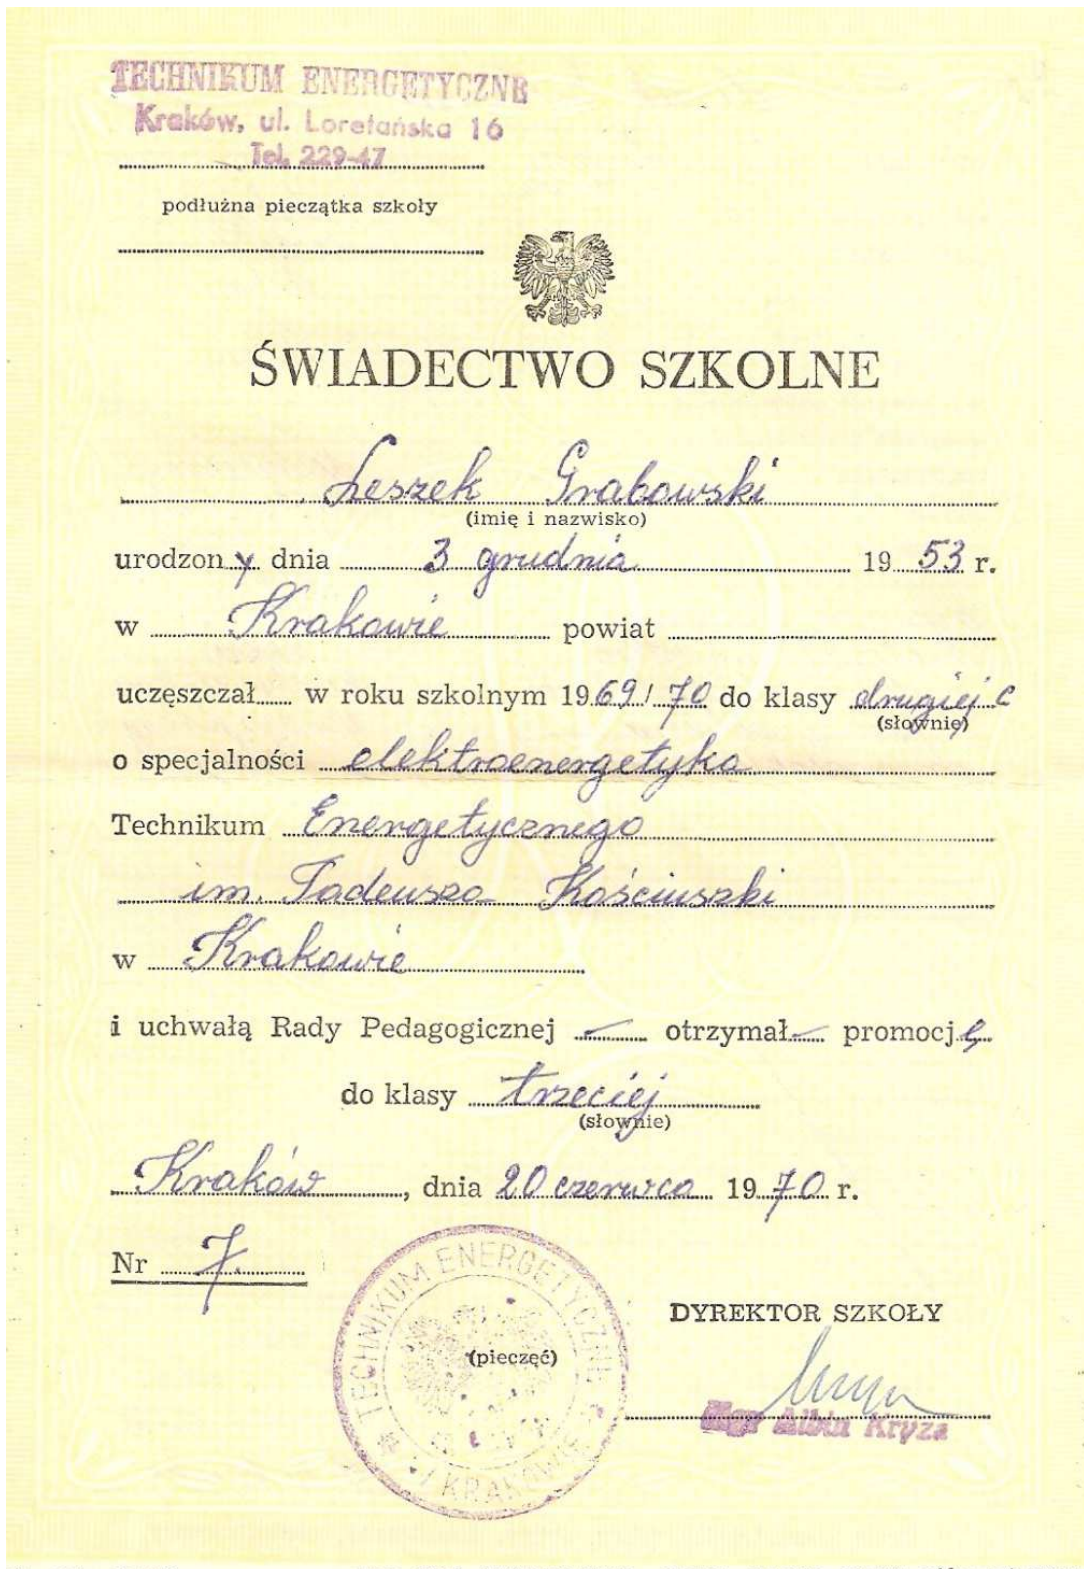 TECHNIKUM ENERGETYCZNE
Kraków, ul. Loretańska 16
Tel. 229-47
podłużna pieczątka szkoły
ŚWIADECTWO SZKOLNE
Leszek Grabowski
(imię i nazwisko)
urodzony dnia 3 grudnia 1953 r.
w Krakowie powiat
uczęszczał w roku szkolnym 1969/70 do klasy drugiej c
(słownie)
o specjalności elektroenergetyka
Technikum Energetycznego
im. Tadeusza Kościuszki
w Krakowie
i uchwałą Rady Pedagogicznej — otrzymał — promocję
do klasy trzeciej
(słownie)
Kraków, dnia 20 czerwca 1970 r.
Nr 7.
TECHNIKUM ENERGETYCZNE
W KRAKOWIE
(pieczęć)
DYREKTOR SZKOŁY
Mgr Albin Kryza